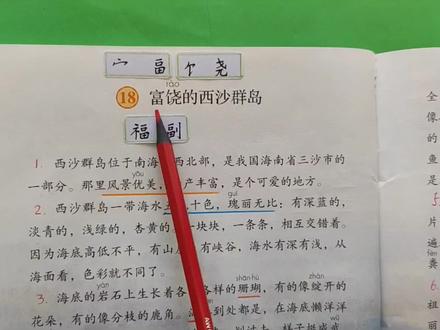 宀 畐 饣 尧
ráo
18 富饶的西沙群岛
福 副
1. 西沙群岛位于南海 西北部，是我国海南省三沙市的
yōu
一部分。那里风景优美， 产丰富，是个可爱的地方。
2. 西沙群岛一带海水 十色，瑰丽无比：有深蓝的，
淡青的，浅绿的，杏黄的 一块块，一条条，相互交错着。
因为海底高低不平，有山 有峡谷，海水有深有浅，从
海面看，色彩就不同了。
yán shān hú
3. 海底的岩石上生长着各 各样的珊瑚，有的像绽开的
花朵，有的像分枝的鹿角。 到处都是，在海底懒洋洋
全
像
的
鱼
是